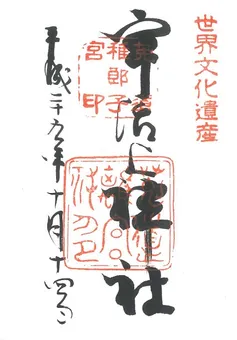 世界文化遺産
宇治上神社
菟道稚郎子宮印
平成二十九年十月十四日